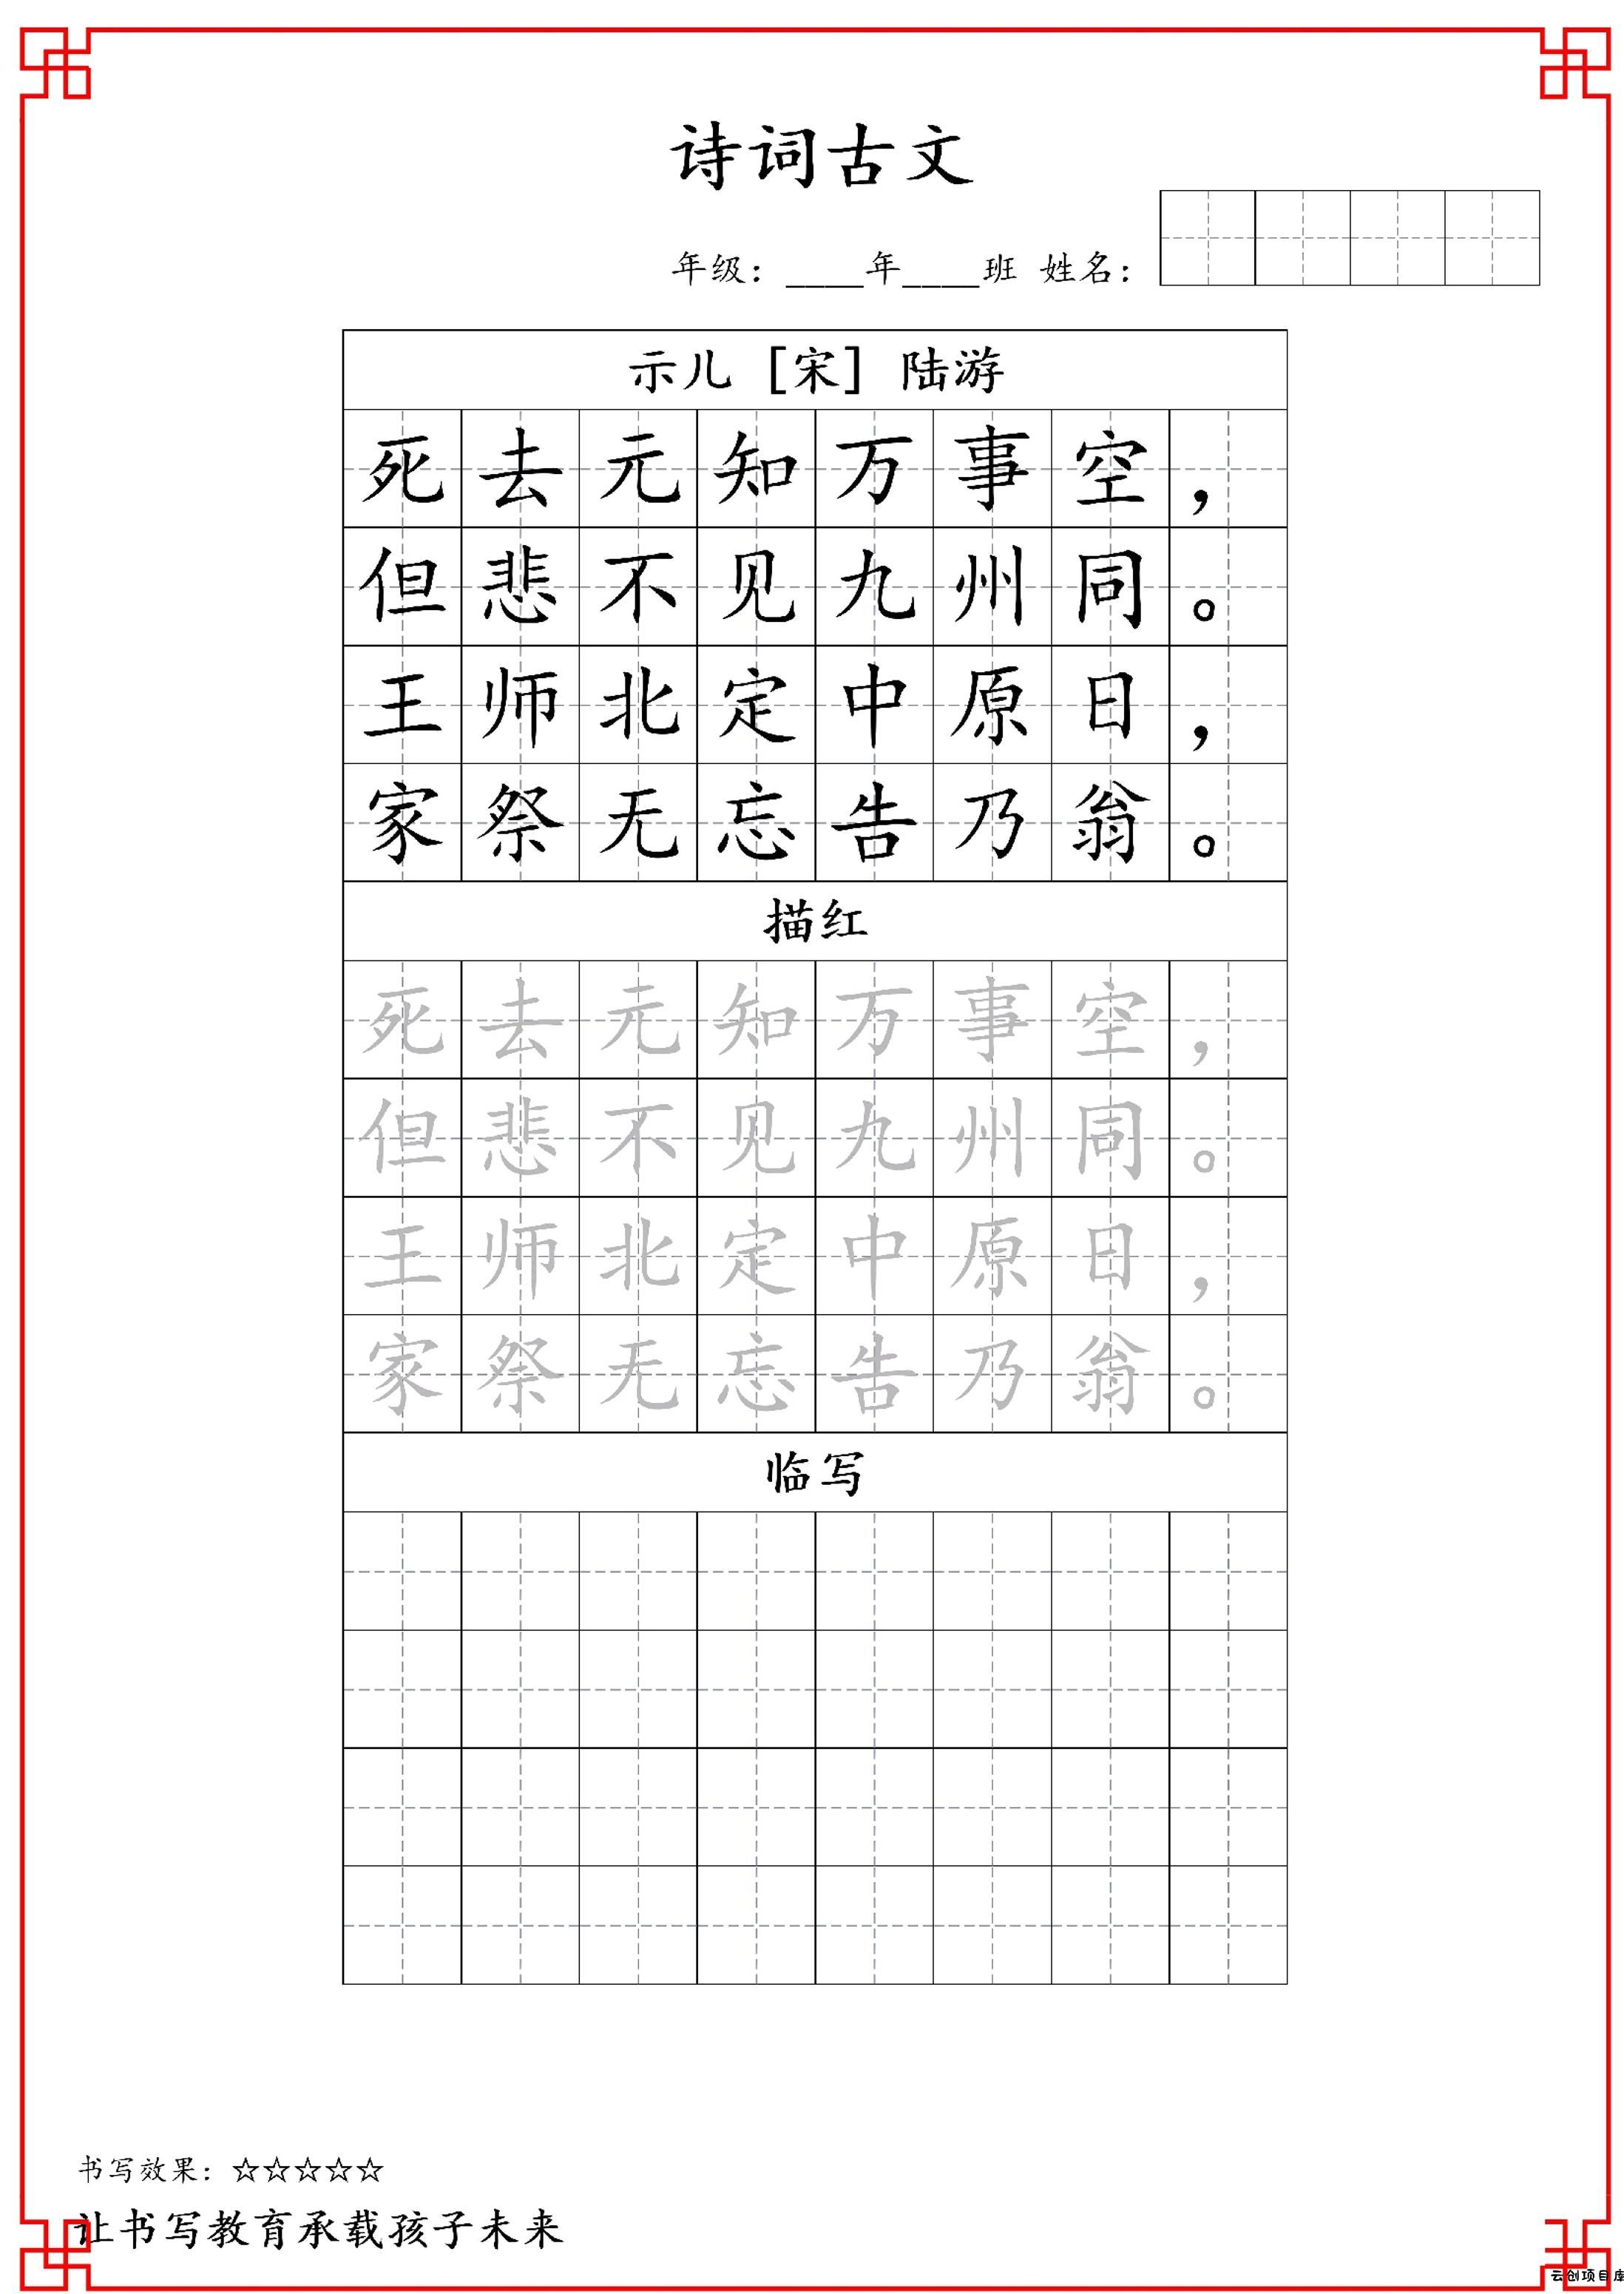 诗词古文
年级：____年____班 姓名：
示儿［宋］陆游
死去元知万事空，
但悲不见九州同。
王师北定中原日，
家祭无忘告乃翁。
描红
死去元知万事空，
但悲不见九州同。
王师北定中原日，
家祭无忘告乃翁。
临写
书写效果：☆☆☆☆☆
让书写教育承载孩子未来
云创项目库